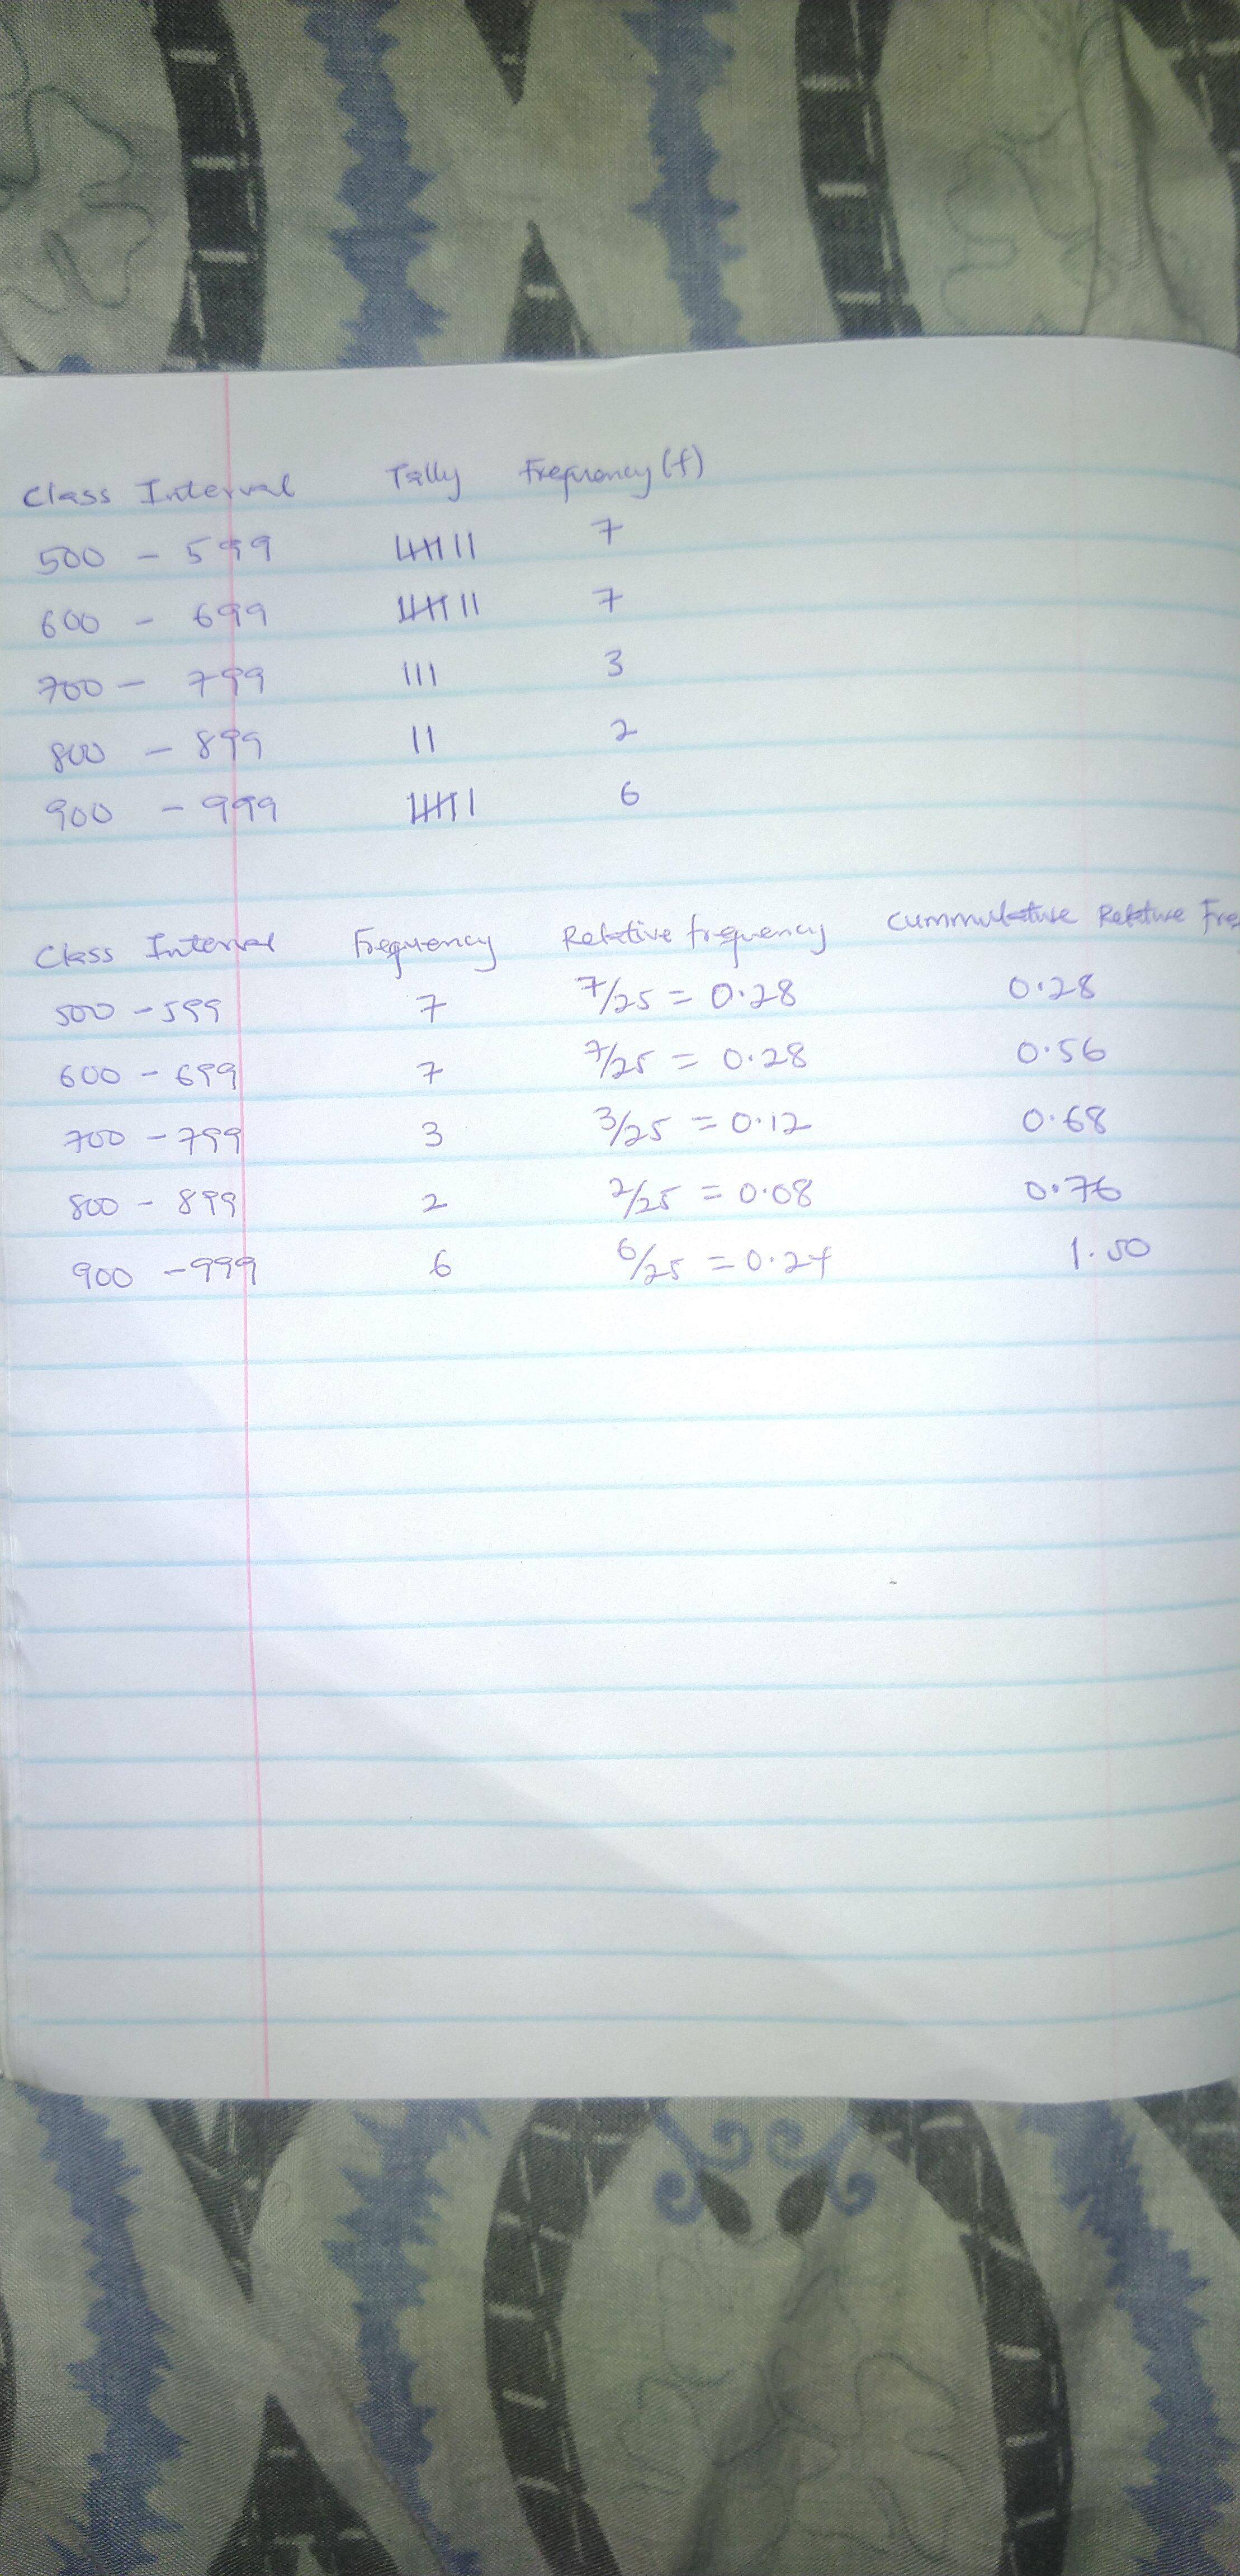 Class Interval Tally Frequency (f)
500 - 599 7
600 - 699 7
700 - 799 III 3
800 - 899 II 2
900 - 999 6
Class Interval Frequency Relative frequency Cummulative Relative Fre
500 - 599 7 7/25 = 0.28 0.28
600 - 699 7 7/25 = 0.28 0.56
700 - 799 3 3/25 = 0.12 0.68
800 - 899 2 2/25 = 0.08 0.76
900 - 999 6 6/25 = 0.24 1.00